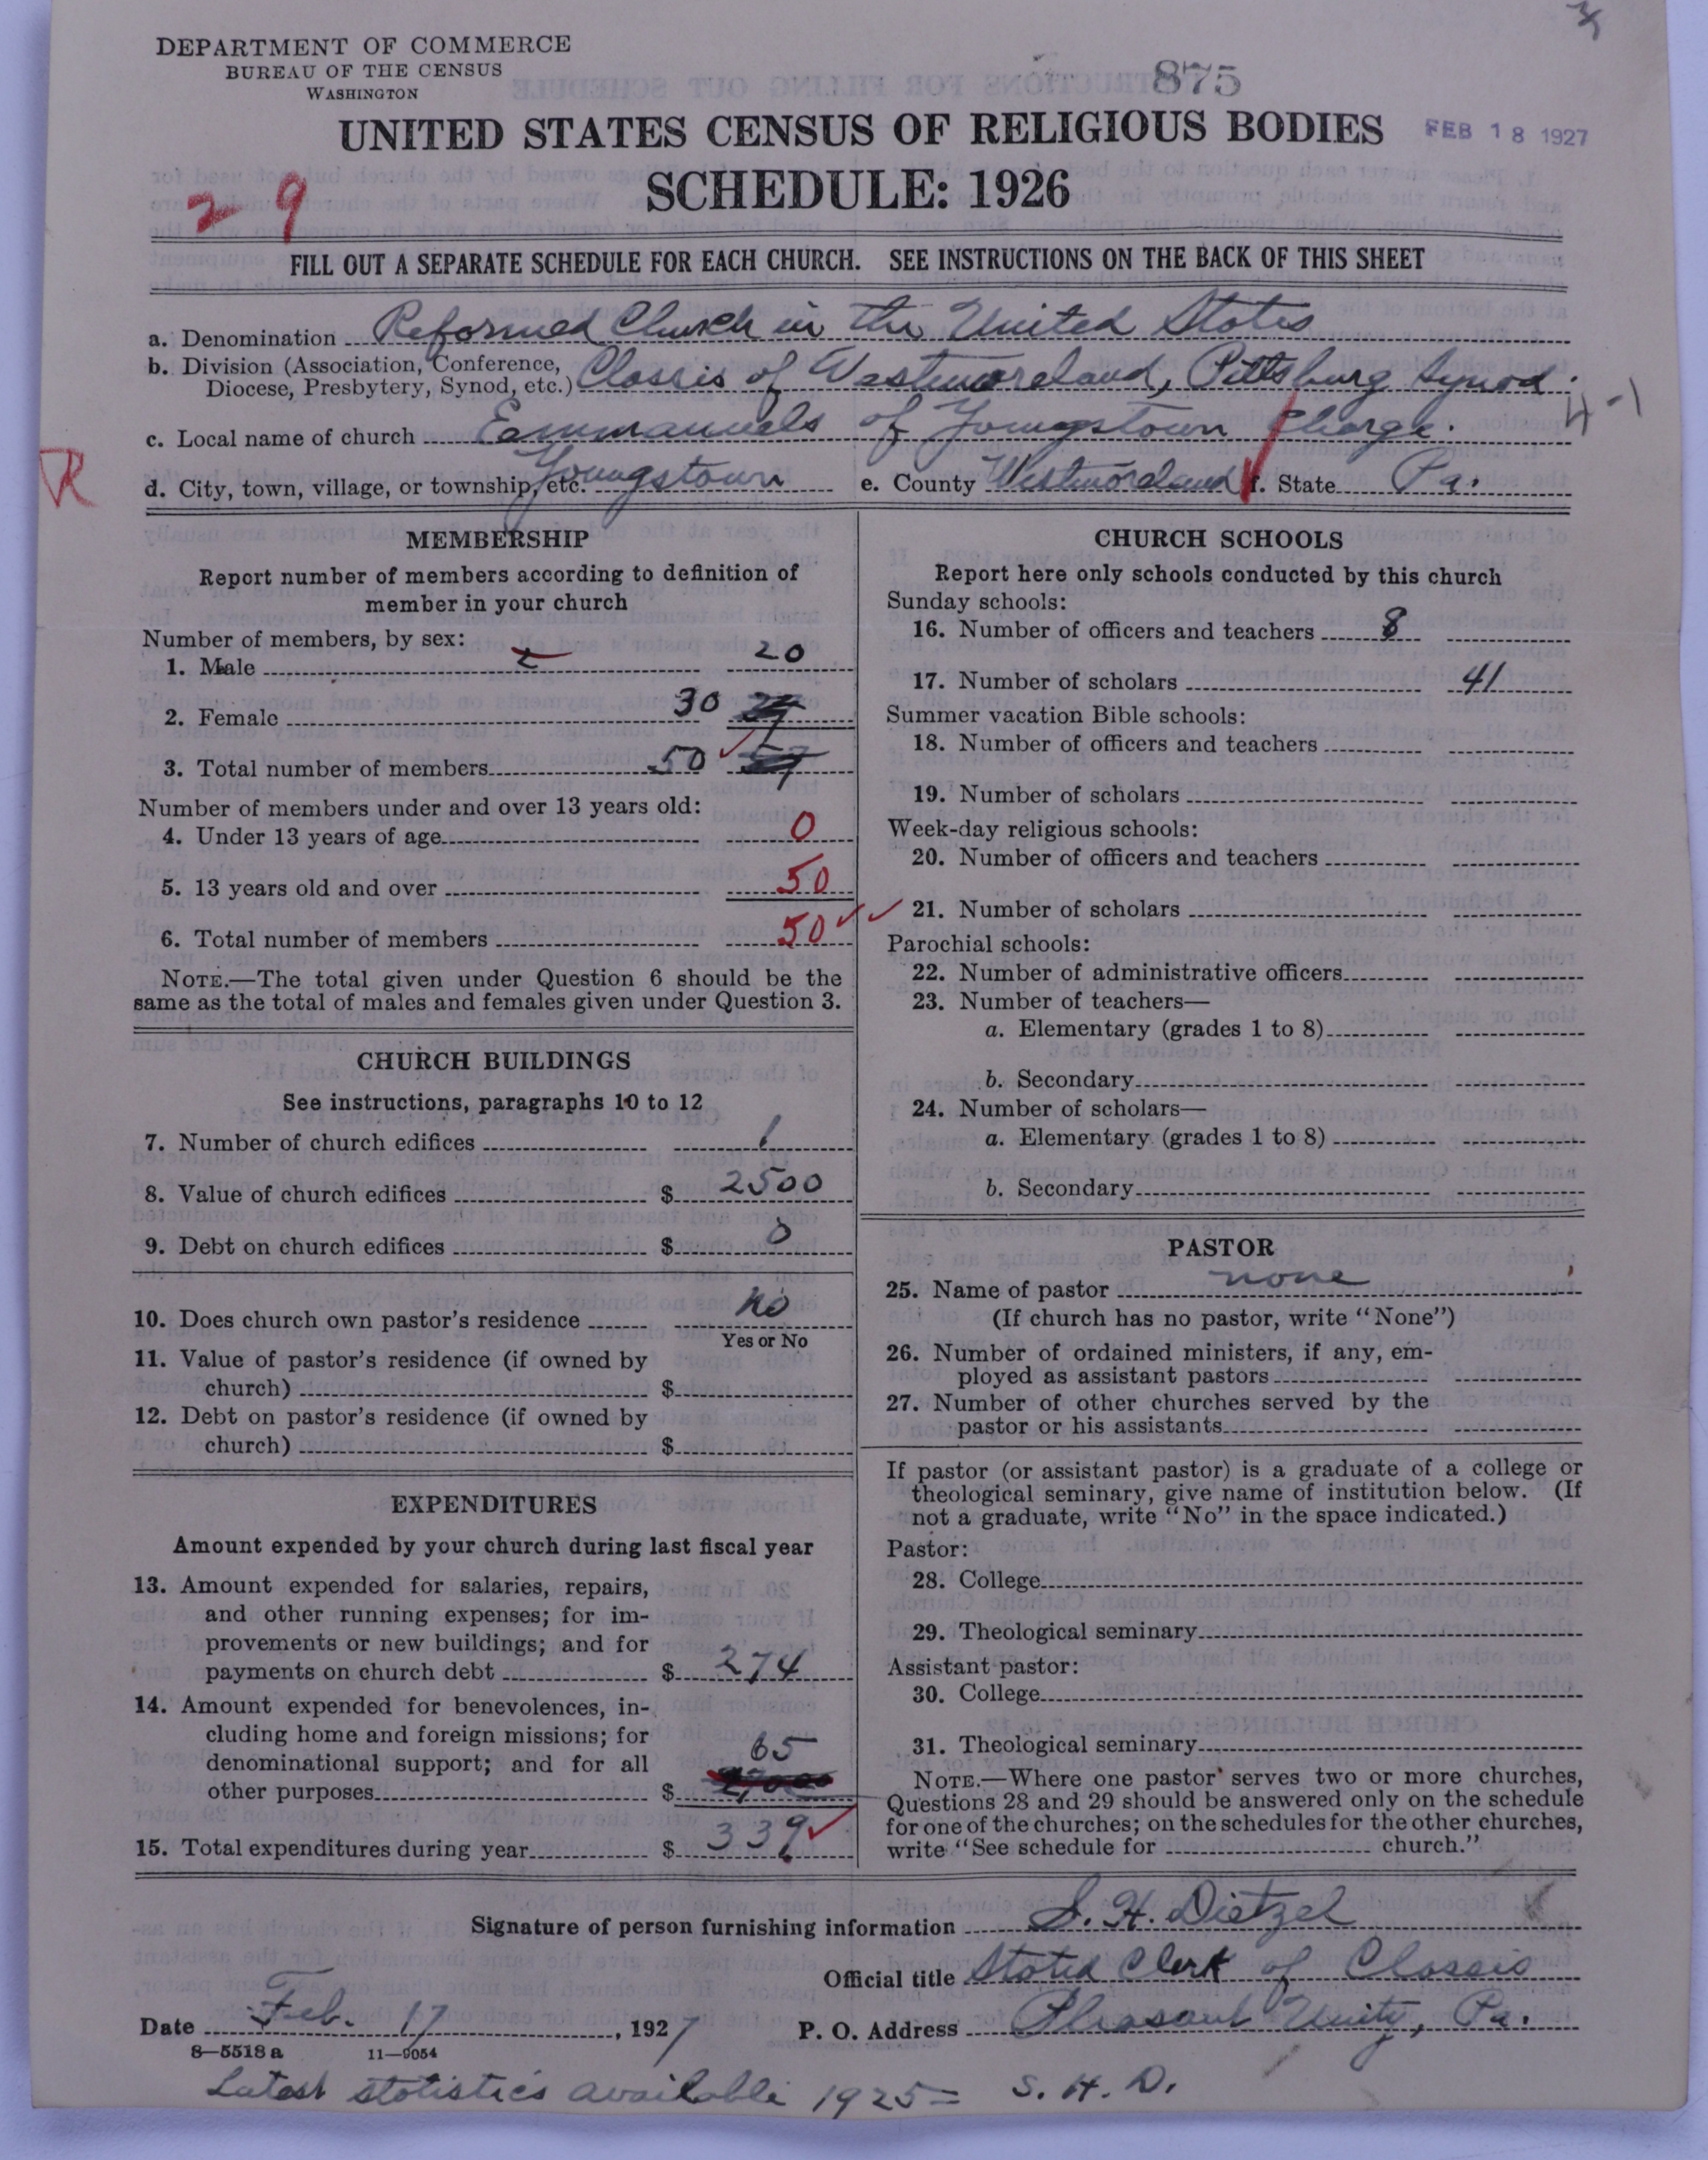 DEPARTMENT OF COMMERCE
BUREAU OF THE CENSUS
WASHINGTON
875
UNITED STATES CENSUS OF RELIGIOUS BODIES
FEB 18 1927
SCHEDULE: 1926
29
FILL OUT A SEPARATE SCHEDULE FOR EACH CHURCH. SEE INSTRUCTIONS ON THE BACK OF THIS SHEET
a. Denomination Reformed Church in the United States
b. Division (Association, Conference, Diocese, Presbytery, Synod, etc.) Classis of Westmoreland, Pittsburg Synod.
4-1
c. Local name of church Emmanuels of Youngstown Charge.
R
d. City, town, village, or township, etc. Youngstown e. County Westmoreland f. State Pa.
MEMBERSHIP
Report number of members according to definition of
member in your church
Number of members, by sex:
1. Male 20
2. Female 30
3. Total number of members 50
Number of members under and over 13 years old:
4. Under 13 years of age 0
5. 13 years old and over 50
6. Total number of members 50
NOTE.—The total given under Question 6 should be the
same as the total of males and females given under Question 3.
CHURCH BUILDINGS
See instructions, paragraphs 10 to 12
7. Number of church edifices 1
8. Value of church edifices $ 2500
9. Debt on church edifices $ 0
10. Does church own pastor's residence No
Yes or No
11. Value of pastor's residence (if owned by
church) $
12. Debt on pastor's residence (if owned by
church) $
EXPENDITURES
Amount expended by your church during last fiscal year
13. Amount expended for salaries, repairs,
and other running expenses; for im-
provements or new buildings; and for
payments on church debt $ 274
14. Amount expended for benevolences, in-
cluding home and foreign missions; for
denominational support; and for all 65
other purposes $
15. Total expenditures during year $ 339
CHURCH SCHOOLS
Report here only schools conducted by this church
Sunday schools:
16. Number of officers and teachers 8
17. Number of scholars 41
Summer vacation Bible schools:
18. Number of officers and teachers
19. Number of scholars
Week-day religious schools:
20. Number of officers and teachers
21. Number of scholars
Parochial schools:
22. Number of administrative officers
23. Number of teachers—
a. Elementary (grades 1 to 8)
b. Secondary
24. Number of scholars—
a. Elementary (grades 1 to 8)
b. Secondary
PASTOR
25. Name of pastor none
(If church has no pastor, write "None")
26. Number of ordained ministers, if any, em-
ployed as assistant pastors
27. Number of other churches served by the
pastor or his assistants
If pastor (or assistant pastor) is a graduate of a college or
theological seminary, give name of institution below. (If
not a graduate, write "No" in the space indicated.)
Pastor:
28. College
29. Theological seminary
Assistant pastor:
30. College
31. Theological seminary
NOTE.—Where one pastor serves two or more churches,
Questions 28 and 29 should be answered only on the schedule
for one of the churches; on the schedules for the other churches,
write "See schedule for church."
Signature of person furnishing information S. H. Dietzel
Official title Stated Clerk of Classis
Date Feb. 17, 1927 P. O. Address Pleasant Unity, Pa.
8—5518 a 11—9054
Latest statistics available 1925 = S. H. D.